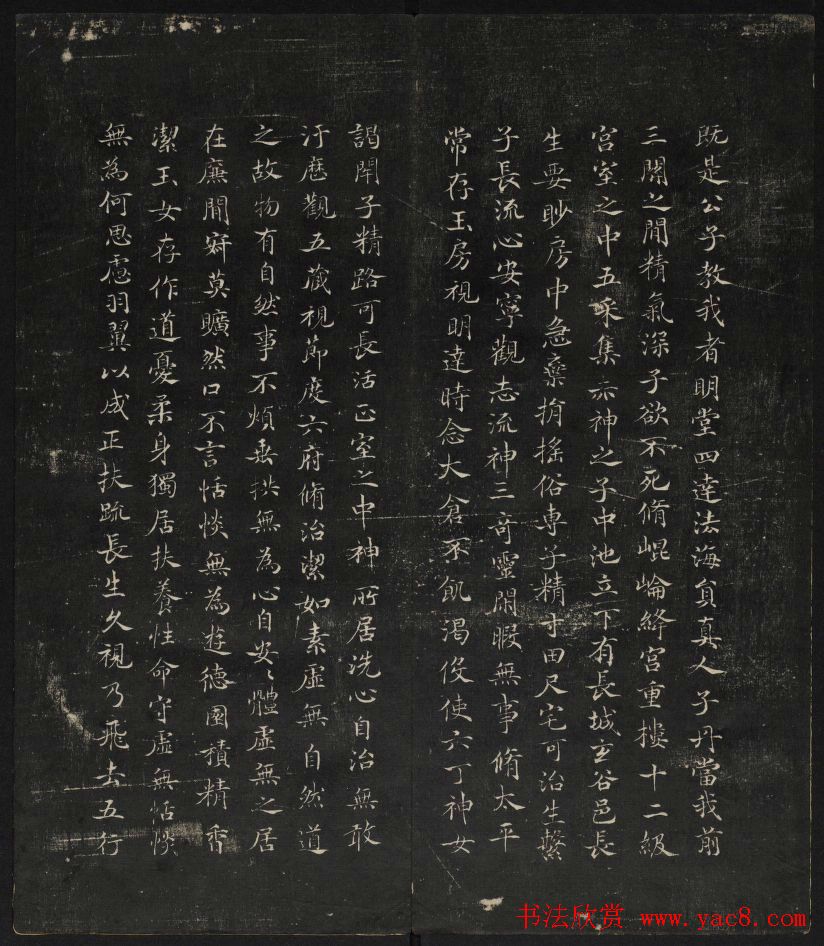 既是公子教我者明堂四達法海員真人子丹當我前
三關之間精氣深子欲不死脩崐崘絳宮重樓十二級
宮室之中五采集赤神之子中池立下有長城玄谷邑長
生要眇房中急棄捐搖俗專子精寸田尺宅可治生繫
子長流心安寧觀志流神三奇靈閑暇無事脩太平
常存玉房視明達時念大倉不飢渴伇使六丁神女
謁閉子精路可長活正室之中神所居洗心自治無敢
汙歷觀五藏視節度六府脩治潔如素虛無自然道
之故物有自然事不煩垂拱無為心自安〻體虛無之居
在廉間寂莫曠然口不言恬惔無為遊德園積精香
潔玉女存作道憂柔身獨居扶養性命守虛無恬惔
無為何思慮羽翼以成正扶疏長生久視乃飛去五行
书法欣赏 www.yac8.com